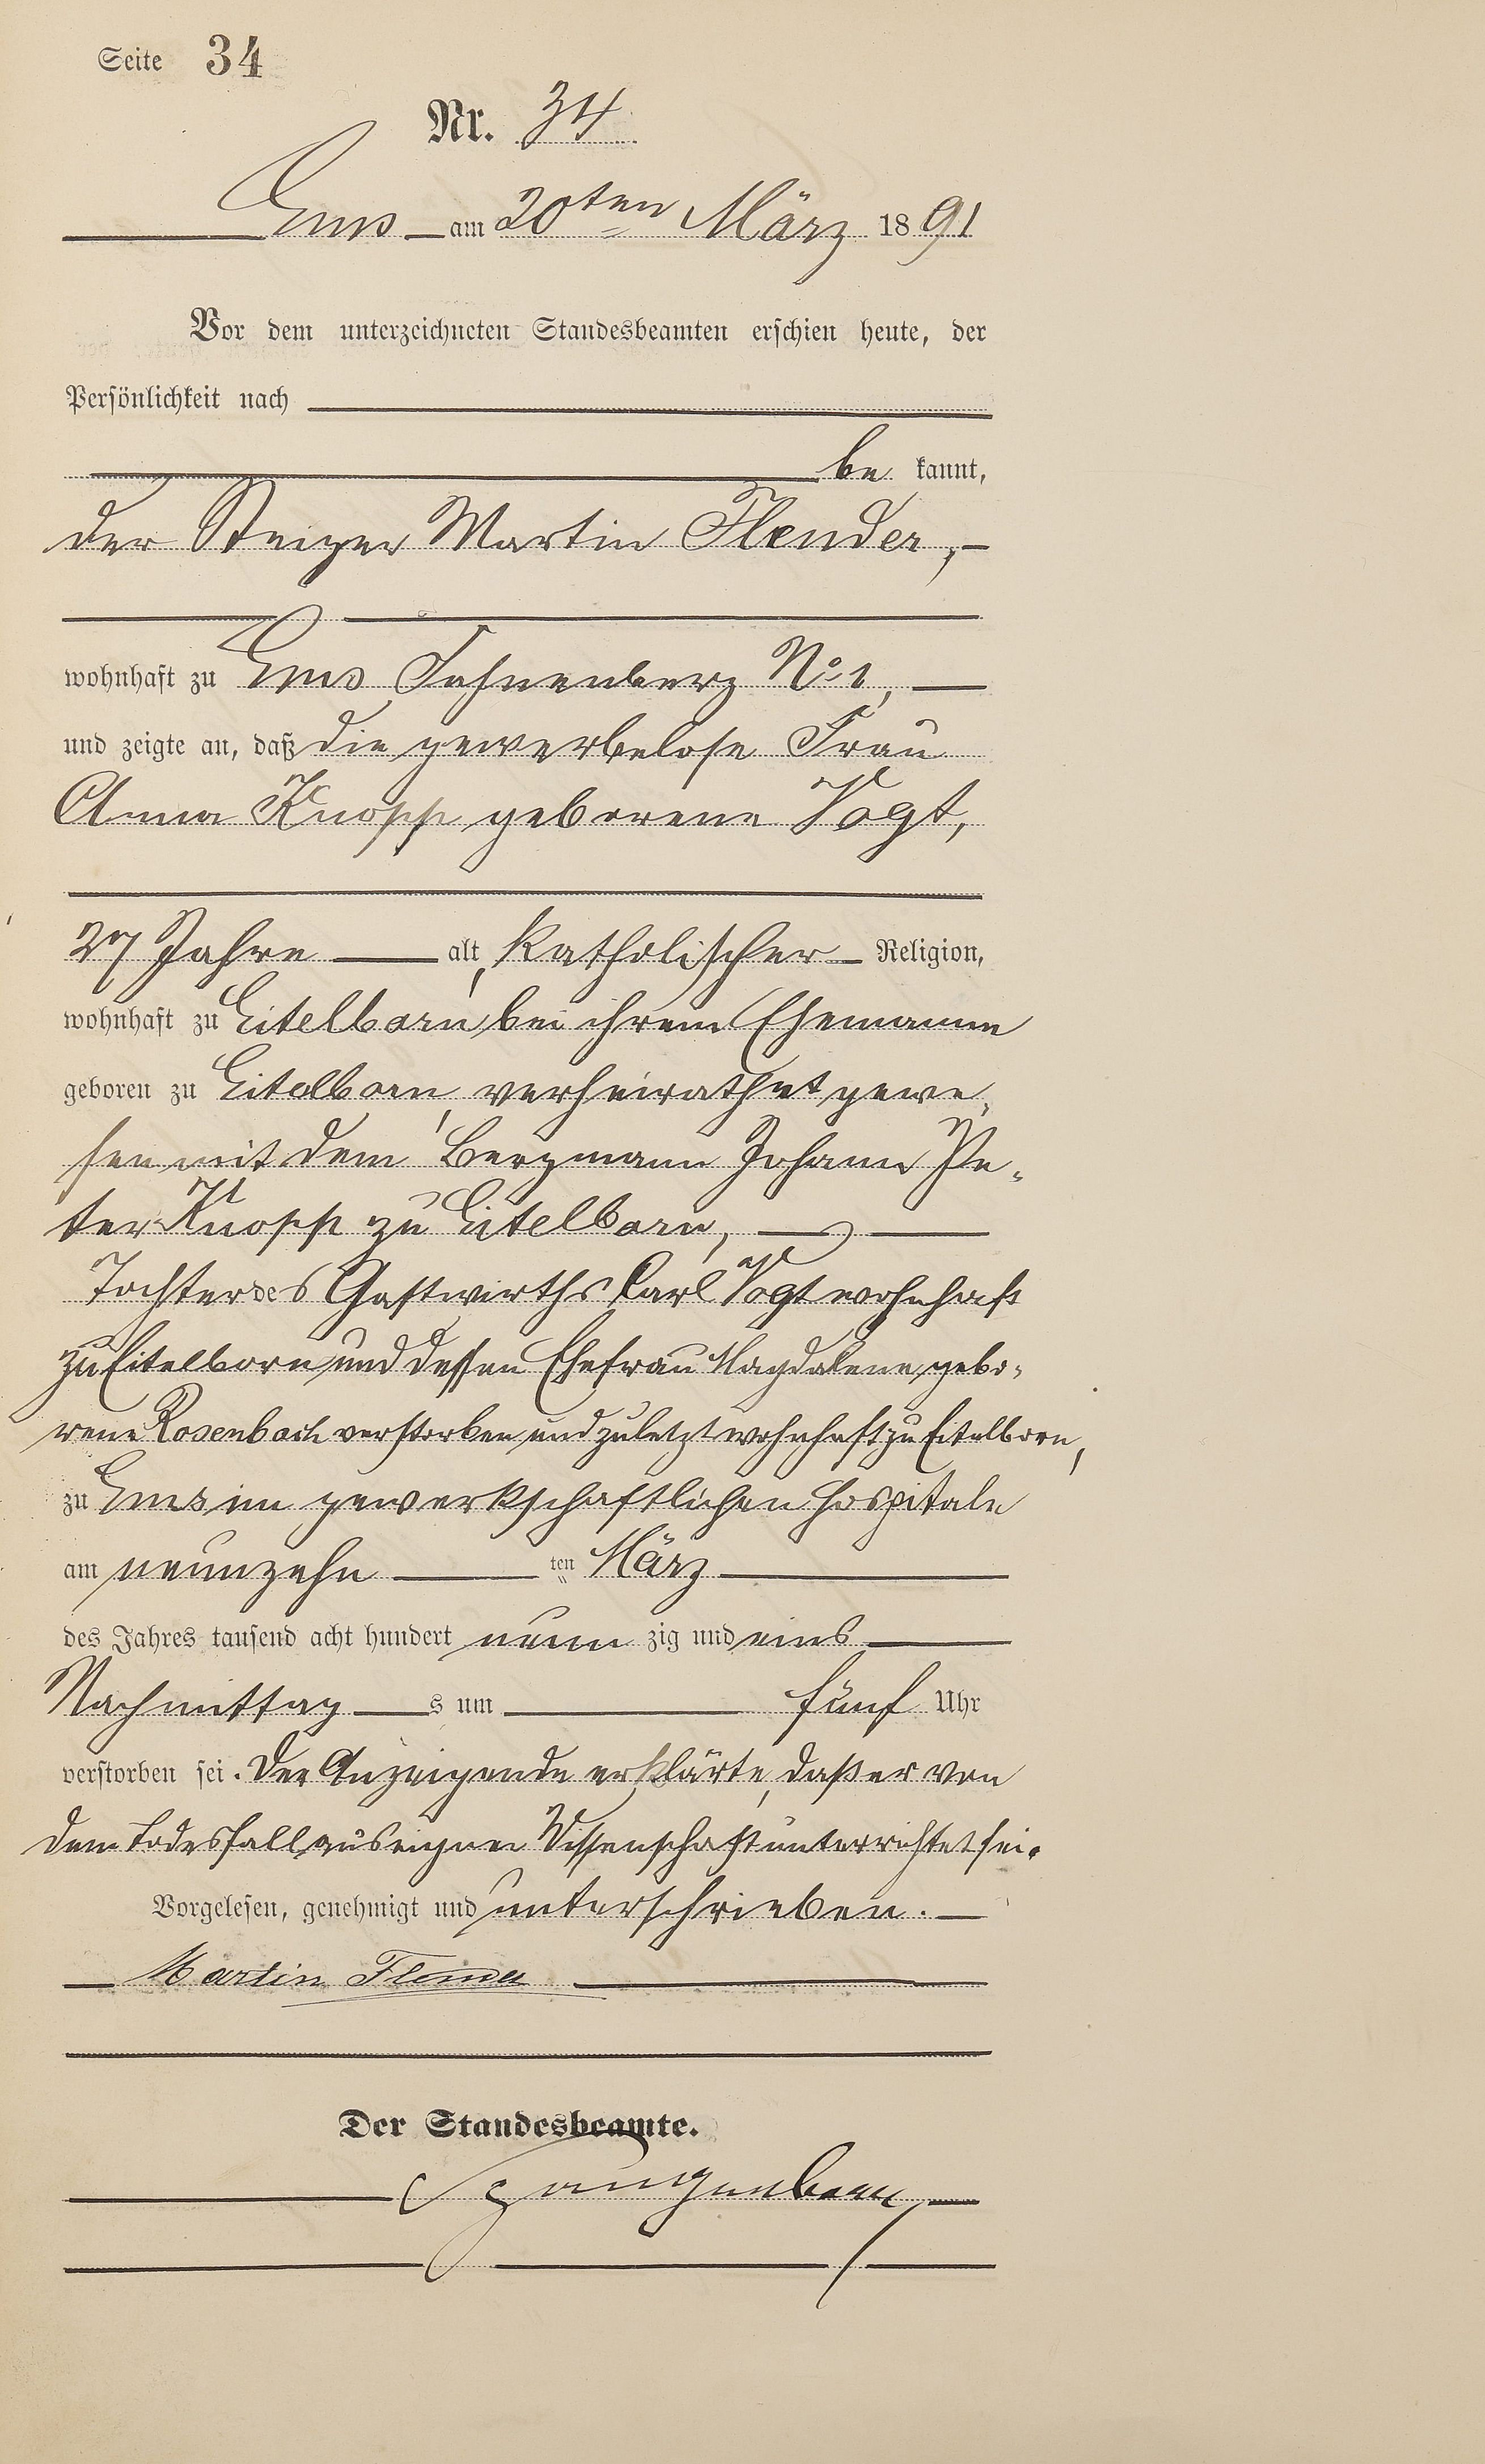 Seite 34
Nr. 34
Ems am 20ten März 1891
Vor dem unterzeichneten Standesbeamten erschien heute, der
Persönlichkeit nach
be kannt,
der Steiger Martin Flender,
wohnhaft zu Ems, Fahnenberg No 1,
und zeigte an, daß die gewerbelose Frau
Anna Knopp geborene Vogt,
27 Jahre alt, katholischer Religion,
wohnhaft zu Eitelborn bei ihrem Ehemanne
geboren zu Eitelborn, verheirathet gewe-
sen mit dem Bergmann Johann Pe-
ter Knopp zu Eitelborn,
Tochter des Gastwirths Carl Vogt wohnhaft
zu Eitelborn und dessen Ehefrau Magdalene gebo-
rene Rosenbach verstorben und zuletzt wohnhaft zu Eitelborn,
zu Ems im gewerkschaftlichen Hospitale
am neunzehn ten März
des Jahres tausend acht hundert neun zig und eins
Nachmittag s um fünf Uhr
verstorben sei. Der Anzeigende erklärte, daß er von
dem Todesfall aus eigner Wissenschaft unterrichtet sei.
Vorgelesen, genehmigt und unterschrieben.
Martin Flender
Der Standesbeamte.